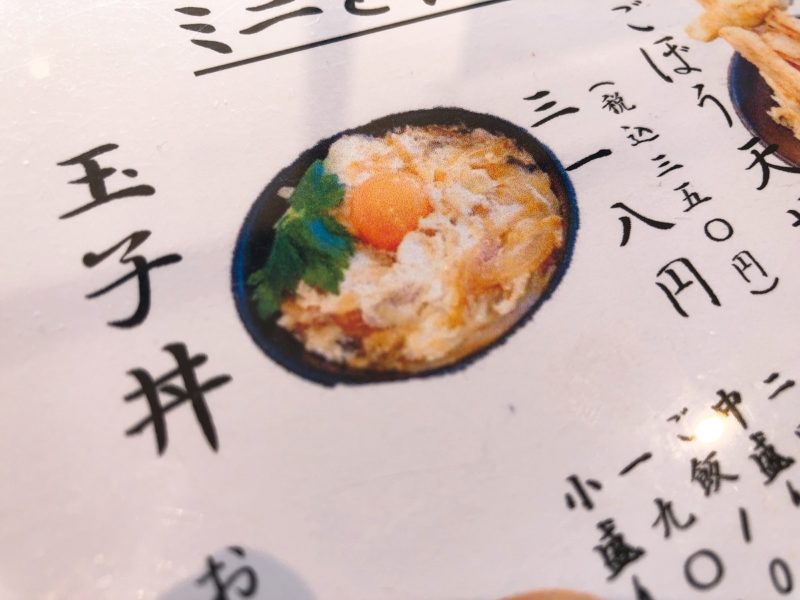 ミニど
ごぼう天
三一八円
（税込三五〇円）
玉子丼
ご飯
中盛
小盛
一九〇
お